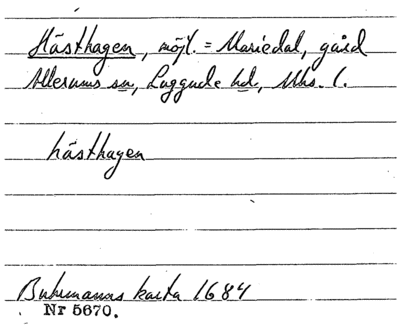 Hästhagen, möjl. = Mariedal, gård
Allerums sn, Luggude hd, Mhs. l.
hästhagen
Buhrmanns karta 1684
Nr 5670.